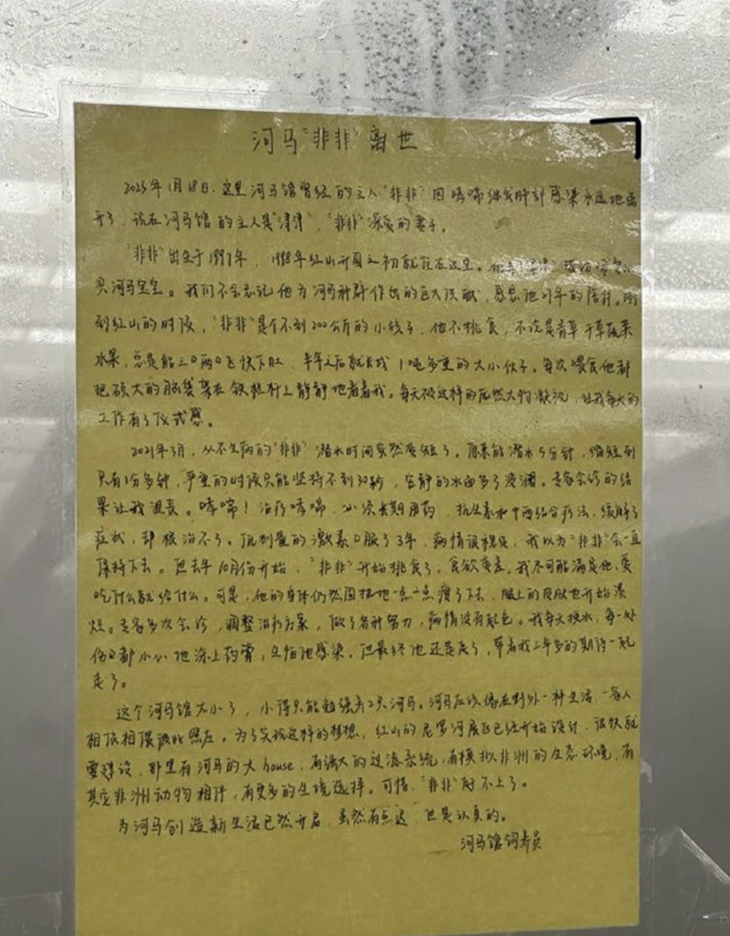 河马“非非”离世
2025年1月18日，这里河马馆曾经的主人“非非”因哮喘继发肺部感染永远地离
开了，现在河马馆的主人是“津津”，“非非”深爱的妻子。
“非非”出生于1997年，1998年红山开园之初就住在这里。他
只河马宝宝。我们不会忘记他为河马种群作出的巨大贡献，感恩他 年的陪伴。刚
到红山的时候，“非非”是个不到200公斤的小伙子，他不挑食，不论是青草干草蔬菜
水果，总是能三口两口飞快下肚，半年之后就长成1吨多重的大小伙子。每次喂食他都
把硕大的脑袋靠在铁栏杆上静静地看着我。每天被这样的庞然大物凝视，让我每天的
工作有了仪式感。
2021年3月，从不生病的“非非”潜水时间突然变短了。原来能潜水5分钟，缩短到
只有1分多钟，严重的时候只能坚持不到30秒，安静的水面多了波澜。专家会诊的结
果让我沮丧。哮喘！治疗哮喘，必须长期用药，抗生素和中西结合疗法，缓解了
症状，却根治不了。低剂量的激素口服了3年，病情很稳定，我以为“非非”会一直
保持下去。但去年10月份开始，“非非”开始挑食了，食欲变差。我尽可能满足他，爱
吃什么就给什么。可是，他的身体仍然固执地一点一点瘦了下去，腿上的皮肤也开始溃
烂。专家多次会诊，调整治疗方案，做了各种努力，病情没有起色。我每天换水，每一处
伤口都小心地涂上药膏，生怕他感染，但最终他还是走了，带着我三年多的期待一起
走了。
这个河马馆太小了，小得只能勉强养2只河马。河马应该像在野外一样生活，一家人
相依相偎彼此照应。为了实现这样的梦想，红山的尼罗河展区已经开始设计，很快就
要建设，那里有河马的大house，有强大的过滤系统，有模拟非洲的生态环境，有
其它非洲动物相伴，有更多的生境选择。可惜，“非非”等不上了。
为河马创造新生活已然开启，虽然有点迟，但是认真的。
河马馆饲养员